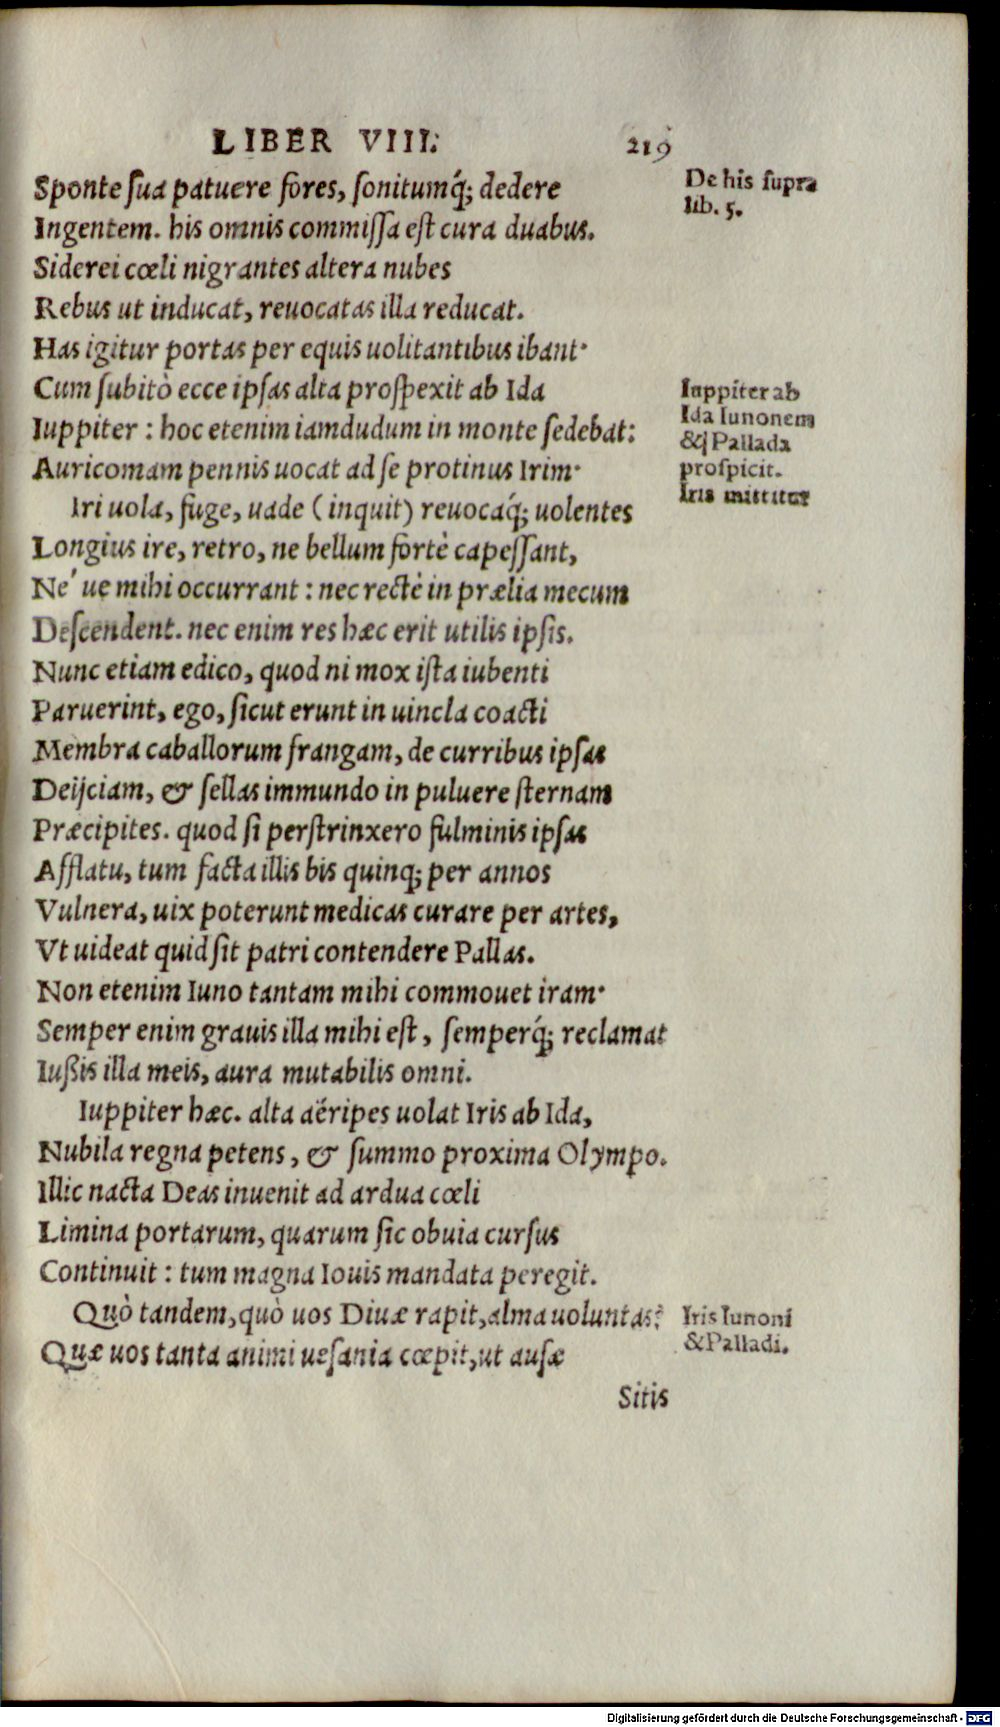 LIBER VIII. 219
Sponte ſua patuere fores, ſonitumq́; dedere
De his ſupra
lib. 5.
Ingentem. his omnis commiſſa eſt cura duabus.
Siderei cœli nigrantes altera nubes
Rebus ut inducat, reuocatas illa reducat.
Has igitur portas per equis uolitantibus ibant·
Cum ſubitò ecce ipſas alta proſpexit ab Ida
Iuppiter ab
Ida Iunonem
&q́ Pallada
proſpicit.
Iris mittitur
Iuppiter : hoc etenim iamdudum in monte ſedebat:
Auricomam pennis uocat ad ſe protinus Irim·
Iri uola, fuge, uade (inquit) reuocaq́; uolentes
Longius ire, retro, ne bellum fortè capeſſant,
Ne' ue mihi occurrant : nec rectè in prælia mecum
Deſcendent. nec enim res hæc erit utilis ipſis.
Nunc etiam edico, quod ni mox iſta iubenti
Paruerint, ego, ſicut erunt in uincla coacti
Membra caballorum frangam, de curribus ipſas
Deijciam, & ſellas immundo in puluere ſternam
Præcipites. quod ſi perſtrinxero fulminis ipſas
Afflatu, tum facta illis bis quinq; per annos
Vulnera, uix poterunt medicas curare per artes,
Vt uideat quid ſit patri contendere Pallas.
Non etenim Iuno tantam mihi commouet iram·
Semper enim grauis illa mihi eſt, ſemperq́; reclamat
Iuſsis illa meis, aura mutabilis omni.
Iuppiter hæc. alta aëripes uolat Iris ab Ida,
Nubila regna petens, & ſummo proxima Olympo.
Illic nacta Deas inuenit ad ardua cœli
Limina portarum, quarum ſic obuia curſus
Continuit : tum magna Iouis mandata peregit.
Quò tandem, quò uos Diuæ rapit, alma uoluntas?
Iris Iunoni
& Palladi.
Quæ uos tanta animi ueſania cœpit, ut auſæ
Sitis
Digitalisierung gefördert durch die Deutsche Forschungsgemeinschaft - DFG